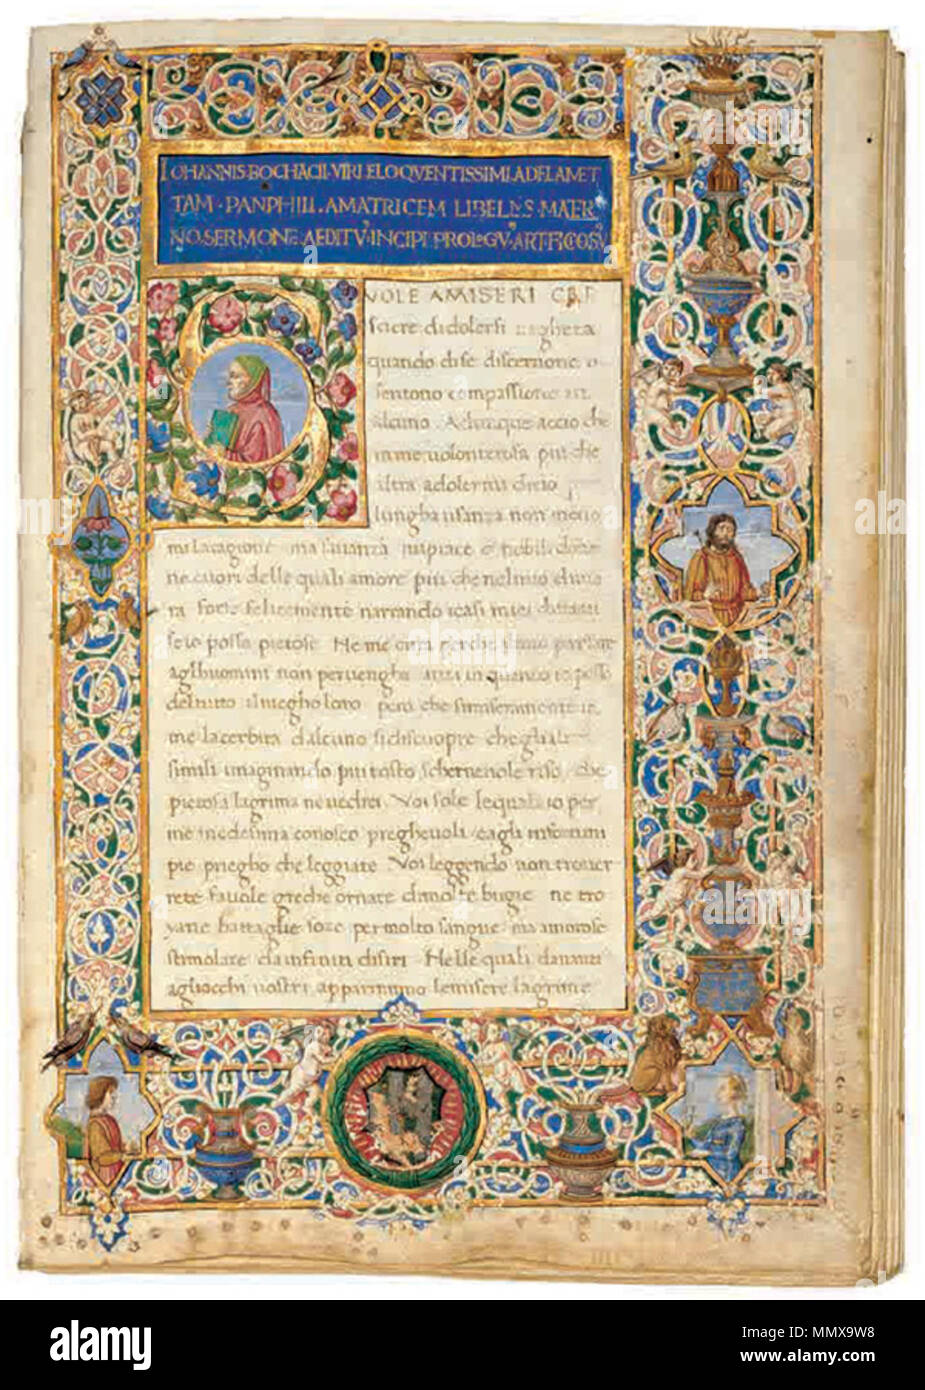 IOHANNIS·BOCHACII·VIRI ELOQVENTISSIMI·ADFLAMET
TAM·PANPHILI·AMATRICEM LIBELLVS·MATER
NO·SERMONE·AEDITV·INCIPT·PROLOGV·ARTIFICOSV
VOLE A MISERI CRE
scere di dolersi vagheza
quando di se discernono o
sentono compassione in
alcuno. Adunque accio che
in me volonterosa piu che
altra a dolermi di cio per
lungha usanza non menomi
mi lacagione ma savanza mi piace o nobili donne
ne cuori delle quali amore piu che nel mio dimo
ra forse felicemente narrando icasi miei di farui
seio posso pietose. Ne me cura perche il mio parlare
aglihuomini non pervengha anzi in quanto io posso
del tutto il niegho loro pero che si miseramente in
me lacerbita dalcuno si discuopre che gli altri
simili imaginando piu tosto schernevole riso che
pietosa lagrima ne vedrei. Voi sole lequali io per
me medesima conosco preghevoli e agli infortuni
pie priegho che leggiate. Voi leggendo non trover
rete favole greche ornate di molte bugie ne tro
yane battaglie soze per molto sangue ma amorose
stimolate da infiniti disiri. Nelle quali dananzi
agliocchi vostri appariranno le misere lagrime
alamy
alamy stock photo
MMX9W8
www.alamy.com